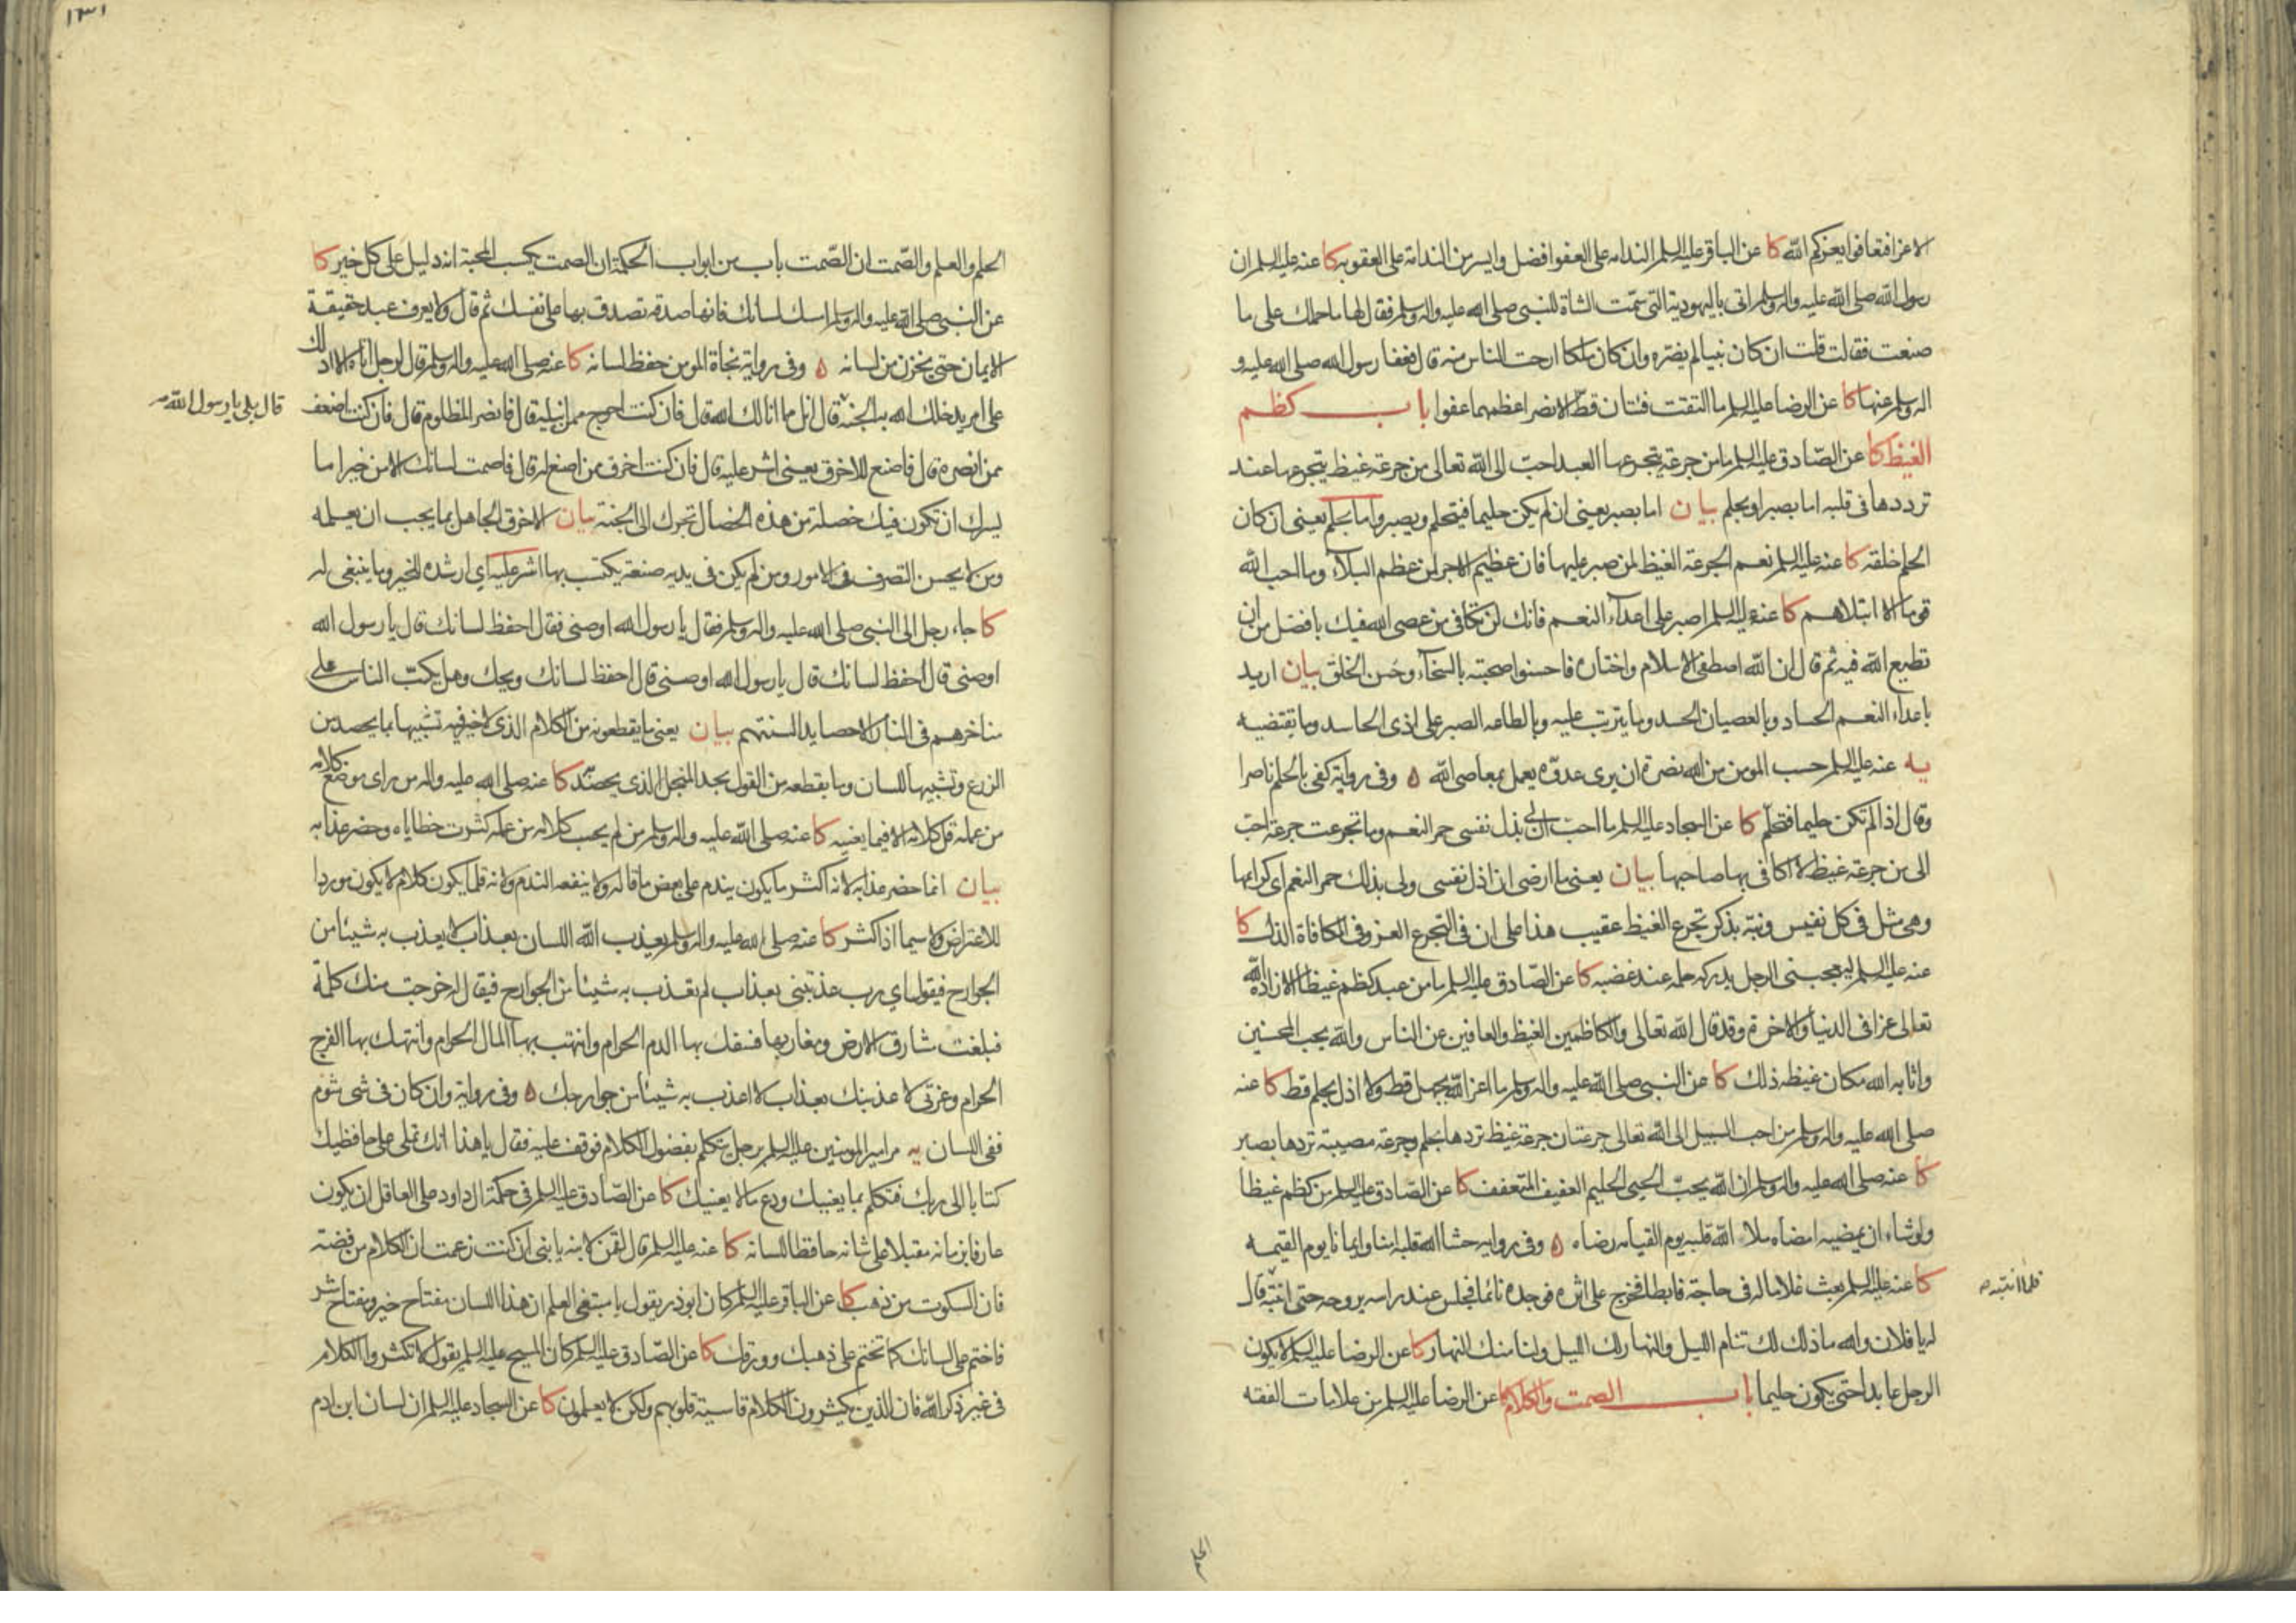 الا عزا فتعافوا يعزكم الله كا عن الباقر عليه السلم الندامه على العفو افضل وايسر من الندامة على العقوبه كا عنه عليه السلم ان
رسول الله صلى الله عليه واله وسلم اتى باليهودية التى سمّت الشاة للنبى صلى الله عليه واله وسلم فقال لها ما حملك على ما
صنعت فقالت قلت ان كان نبيا لم يضره وان كان ملكا ارحت الناس منه قال فعفا رسول الله صلى الله عليه و
اله وسلم عنها كا عن الرضا عليه السلم ما التقت فئتان قط الا نصر اعظمهما عفوا باب كظم
الغيظ كا عن الصّادق عليه السلم ما من جرعة يتجرعها العبد احبّ الى الله تعالى من جرعة غيظ يتجرعها عند
ترددها فى قلبه اما بصبر او بحلم بيان اما بصبر يعنى ان لم يكن حليما فيتحلم ويصبر واما بحلم يعنى ان كان
الحلم خلقه كا عنه عليه السلم نعم الجرعة الغيظ لمن صبر عليها فان عظيم الاجر لمن عظم البلآء وما احب الله
قوما الا ابتلاهم كا عنه عليه السلم اصبر على اعدآء النعم فانك لن تكافى من عصى الله فيك بافضل من ان
تطيع الله فيه ثم قال ان الله اصطفى الاسلام واختاره فاحسنوا صحبته بالسخآء وحُسن الخلق بيان اريد
باعداء النعم الحساد وبالعصيان الحسد وما يترتب عليه وبالطاعه الصبر على اذى الحاسد وما يقتضيه
يه عنه عليه السلم حسب المومن من الله نصرة ان يرى عدوّه يعمل بمعاصى الله ه وفى رواية كفى بالحلم ناصرا
وقال اذا لم تكن حليما فتحلّم كا عن السجاد عليه السلم ما احبّ ان لى بذل نفسى حمر النعم وما تجرعت جرعة احبّ
الى من جرعة غيظ لا اكافى بها صاحبها بيان يعنى ما ارضى ان اذل نفسى ولى بذلك حمر النعم اى كرايمها
وهى مثل فى كل نفيس ونبّه بذكر تجرع الغيظ عقيب هذا على ان فى التجرع العز وفى المكافاة الذل كا
عنه عليه السلم انه ليعجبنى الرجل يدركه حلمه عند غضبه كا عن الصّادق عليه السلم ما من عبد كظم غيظا الا زاده الله
تعالى عزا فى الدنيا والاخرة وقد قال الله تعالى والكاظمين الغيظ والعافين عن الناس والله يحب المحسنين
واثابه الله مكان غيظه ذلك كا عن النبى صلى الله عليه واله وسلم ما اعز الله بجهل قط ولا اذل بحلم قط كا عنه
صلى الله عليه واله وسلم من احب السبيل الى الله تعالى جرعتان جرعة غيظ تردها بحلم وجرعة مصيبة تردها بصبر
كا عنه صلى الله عليه واله وسلم ان الله يحبّ الحيى الحليم العفيف المتعفف كا عن الصّادق عليه السلم من كظم غيظا
ولو شاء ان يمضيه امضاه ملاء الله قلبه يوم القيامه رضاه ه وفى روايه حشا الله قلبه امنا وايمانا يوم القيمه
كا عنه عليه السلم بعث غلاما له فى حاجة فابطا فخرج على اثره فوجده نائما فجلس عند راسه يروحه حتى انتبه قال
فلما انتبه
له يا فلان والله ما ذلك لك تنام الليل والنهار لك الليل ولنا منك النهار كا عن الرضا عليه السلم لا يكون
الرجل عابدا حتى يكون حليما باب الصمت والكلام كا عن الرضا عليه السلم من علامات الفقه
١٣١
الحلم والعلم والصّمت ان الصّمت باب من ابواب الحكمة ان الصمت يكسب المحبة انه دليل على كل خير كا
عن النبى صلى الله عليه واله وسلم امسك لسانك فانها صدقه تصدق بها على نفسك ثم قال ولا يعرف عبد حقيقة
الايمان حتى يخزن من لسانه ه وفى رواية نجاة المومن حفظ لسانه كا عنه صلى الله عليه واله وسلم قال لرجل اتاه الا ادلك
على امر يدخلك الله به الجنة قال انل مما انالك الله قال فان كنت احوج ممن انيله قال فانصر المظلوم قال فان كنت اضعف
قال بلى يا رسول الله
ممن انصره قال فاصنع للاخرق يعنى اشر عليه قال فان كنت اخرق ممن اصنع له قال فاصمت لسانك الا من خير اما
يسرك ان تكون فيك خصلة من هذه الخصال تجرك الى الجنة بيان الاخرق الجاهل بما يجب ان يعلمه
ومن لا يحسن التصرف فى الامور ومن لم يكن فى يديه صنعة يكتسب بها اشر عليه اى ارشده للخير وما ينبغى له
كا جاء رجل الى النبى صلى الله عليه واله وسلم فقال يا رسول الله اوصنى فقال احفظ لسانك قال يا رسول الله
اوصنى قال احفظ لسانك قال يا رسول الله اوصنى قال احفظ لسانك ويحك وهل يكبّ الناس على
مناخرهم فى النار الا حصايد السنتهم بيان يعنى ما يقطعونه من الكلام الذى لا خير فيه تشبيها بما يحصد من
الزرع وتشبيها للسان وما يقطعه من القول بحد المنجل الذى يحصد كا عنه صلى الله عليه واله من راى موضع كلامه
من عمله قل كلامه الا فيما يعنيه كا عنه صلى الله عليه واله وسلم من لم يحسب كلامه من عمله كثرت خطاياه وحضر عذابه
بيان انما حضر عذابه لانه اكثر ما يكون يندم على بعض ما قاله ولا ينفعه الندم ولانه قلما يكون كلام لا يكون موردا
للاعتراض ولا سيما اذا كثر كا عنه صلى الله عليه واله وسلم يعذب الله اللسان بعذاب لا يعذب به شيئا من
الجوارح فيقول اى رب عذبتنى بعذاب لم تعذب به شيئا من الجوارح فيقال له خرجت منك كلمة
فبلغت مشارق الارض ومغاربها فسفك بها الدم الحرام وانتهب بها المال الحرام وانتهك بها الفرج
الحرام وعزتى لاعذبنك بعذاب لا اعذب به شيئا من جوارحك ه وفى رواية وان كان فى شى شوم
ففى اللسان يه مر امير المومنين عليه السلم برجل يتكلم بفضول الكلام فوقف عليه فقال يا هذا انك تملى على حافظيك
كتابا الى ربك فتكلم بما يعنيك ودع ما لا يعنيك كا عن الصّادق عليه السلم فى حكمة ال داود على العاقل ان يكون
عارفا بزمانه مقبلا على شانه حافظا للسانه كا عنه عليه السلم قال لقمن لابنه يا بنى ان كنت زعمت ان الكلام من فضة
فان السكوت من ذهب كا عن الباقر عليه السلم كان ابوذر يقول يا مبتغى العلم ان هذا اللسان مفتاح خير ومفتاح شر
فاختم على لسانك كما تختم على ذهبك وورقك كا عن الصّادق عليه السلم كان المسيح عليه السلم يقول لا تكثروا الكلام
فى غير ذكر الله فان الذين يكثرون الكلام قاسية قلوبهم ولكن لا يعلمون كا عن السجاد عليه السلم ان لسان ابن ادم